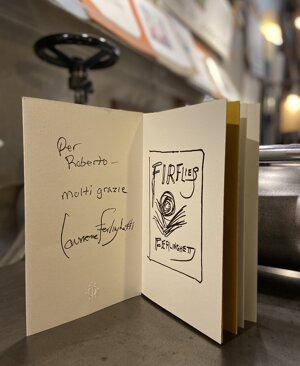 Per
Roberto –
molti grazie
Lawrence Ferlinghetti
FIRFLIES
FERLINGHETTI